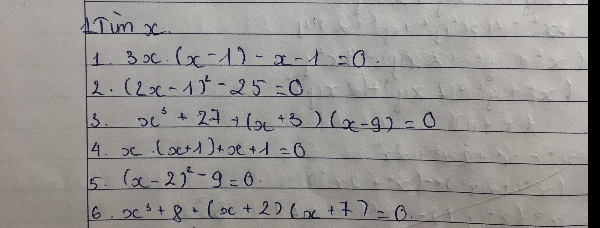 1 Tìm x.
1. 3x.(x-1)-x-1=0.
2. (2x-1)²-25=0.
3. x³+27+(x+3)(x-9)=0
4. x.(x+1)+x+1=0
5. (x-2)²-9=0.
6. x³+8+(x+2)(x+7)=0.